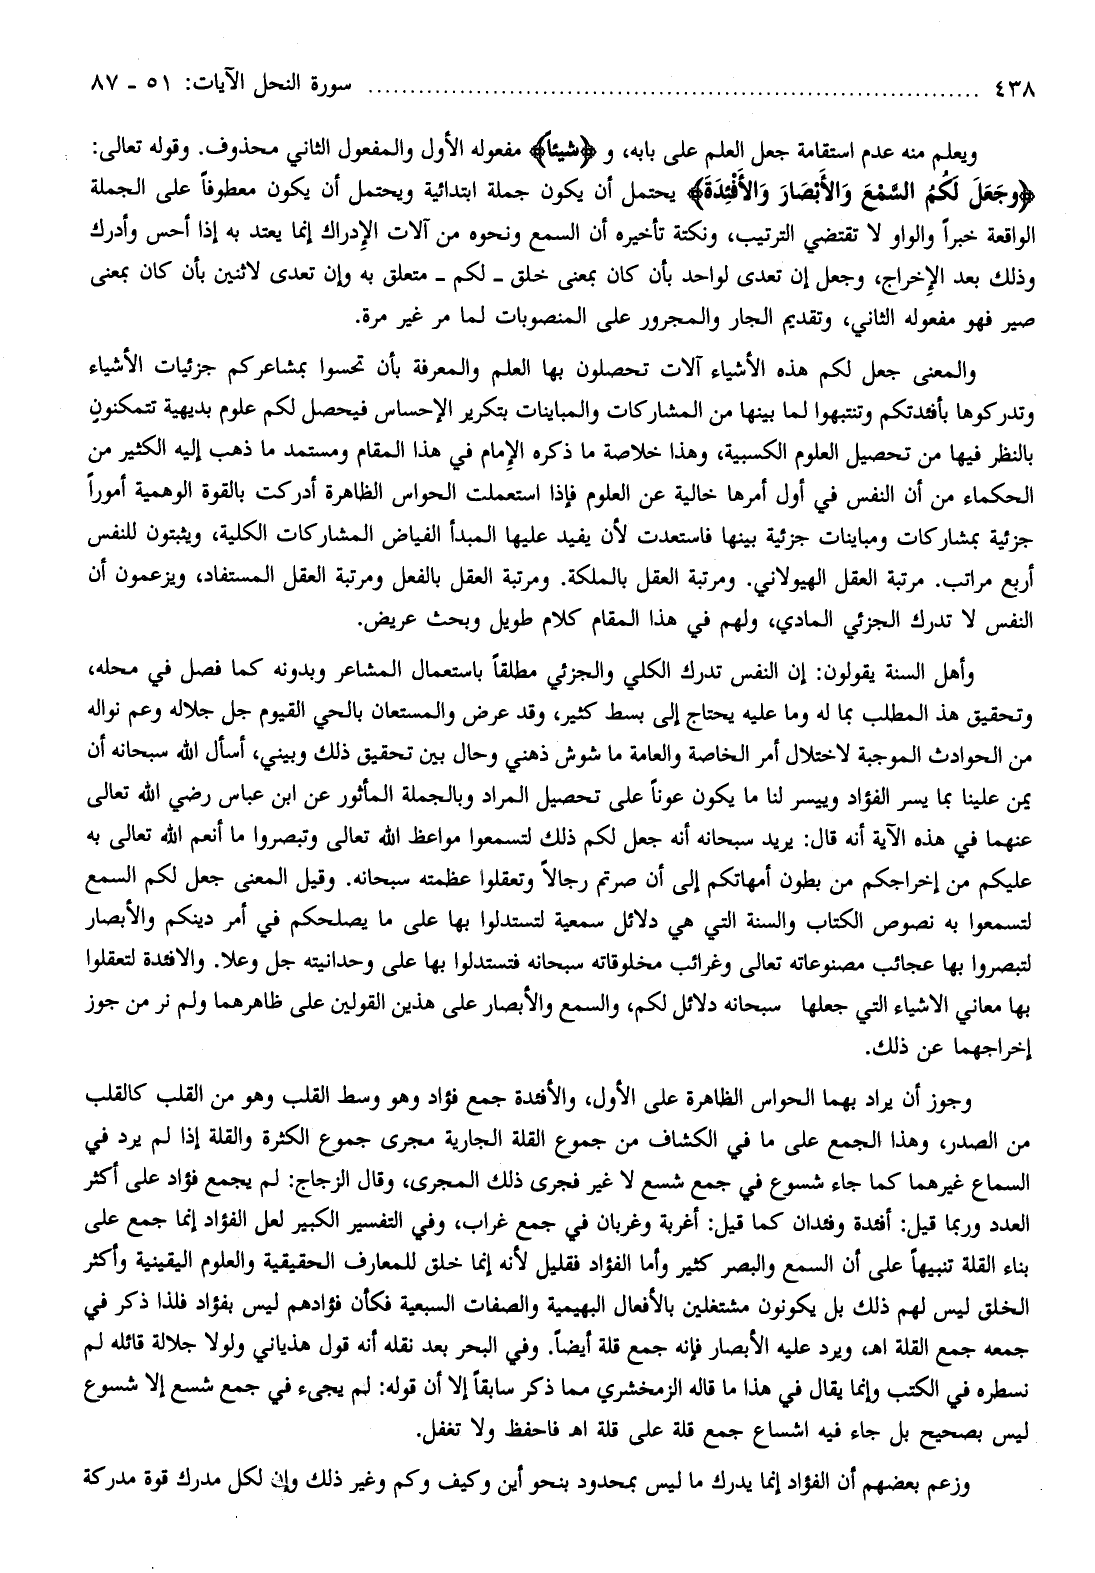 ٤٣٨ ................................................................ سورة النحل الآيات: ٥١ ـ ٨٧
ويعلم منه عدم استقامة جعل العلم على بابه، و ﴿شيئاً﴾ مفعوله الأول والمفعول الثاني محذوف. وقوله تعالى:
﴿وَجَعَلَ لَكُمُ السَّمْعَ وَالأَبْصَارَ وَالأَفْئِدَةَ﴾ يحتمل أن يكون جملة ابتدائية ويحتمل أن يكون معطوفاً على الجملة
الواقعة خبراً والواو لا تقتضي الترتيب، ونكتة تأخيره أن السمع ونحوه من آلات الإدراك إنما يعتد به إذا أحس وأدرك
وذلك بعد الإخراج، وجعل إن تعدى لواحد بأن كان بمعنى خلق ـ لكم ـ متعلق به وإن تعدى لاثنين بأن كان بمعنى
صير فهو مفعوله الثاني، وتقديم الجار والمجرور على المنصوبات لما مر غير مرة.
والمعنى جعل لكم هذه الأشياء آلات تحصلون بها العلم والمعرفة بأن تحسوا بمشاعركم جزئيات الأشياء
وتدركوها بأفئدتكم وتنتبهوا لما بينها من المشاركات والمباينات بتكرير الإحساس فيحصل لكم علوم بديهية تتمكنون
بالنظر فيها من تحصيل العلوم الكسبية، وهذا خلاصة ما ذكره الإمام في هذا المقام ومستمد ما ذهب إليه الكثير من
الحكماء من أن النفس في أول أمرها خالية عن العلوم فإذا استعملت الحواس الظاهرة أدركت بالقوة الوهمية أموراً
جزئية بمشاركات ومباينات جزئية بينها فاستعدت لأن يفيد عليها المبدأ الفياض المشاركات الكلية، ويثبتون للنفس
أربع مراتب. مرتبة العقل الهيولاني. ومرتبة العقل بالملكة. ومرتبة العقل بالفعل ومرتبة العقل المستفاد، ويزعمون أن
النفس لا تدرك الجزئي المادي، ولهم في هذا المقام كلام طويل وبحث عريض.
وأهل السنة يقولون: إن النفس تدرك الكلي والجزئي مطلقاً باستعمال المشاعر وبدونه كما فصل في محله،
وتحقيق هذ المطلب بما له وما عليه يحتاج إلى بسط كثير، وقد عرض والمستعان بالحي القيوم جل جلاله وعم نواله
من الحوادث الموجبة لاختلال أمر الخاصة والعامة ما شوش ذهني وحال بين تحقيق ذلك وبيني، أسأل الله سبحانه أن
يمن علينا بما يسر الفؤاد وييسر لنا ما يكون عوناً على تحصيل المراد وبالجملة المأثور عن ابن عباس رضي الله تعالى
عنهما في هذه الآية أنه قال: يريد سبحانه أنه جعل لكم ذلك لتسمعوا مواعظ الله تعالى وتبصروا ما أنعم الله تعالى به
عليكم من إخراجكم من بطون أمهاتكم إلى أن صرتم رجالاً وتعقلوا عظمته سبحانه. وقيل المعنى جعل لكم السمع
لتسمعوا به نصوص الكتاب والسنة التي هي دلائل سمعية لتستدلوا بها على ما يصلحكم في أمر دينكم والأبصار
لتبصروا بها عجائب مصنوعاته تعالى وغرائب مخلوقاته سبحانه فتستدلوا بها على وحدانيته جل وعلا. والافئدة لتعقلوا
بها معاني الاشياء التي جعلها سبحانه دلائل لكم، والسمع والأبصار على هذين القولين على ظاهرهما ولم نر من جوز
إخراجهما عن ذلك.
وجوز أن يراد بهما الحواس الظاهرة على الأول، والأفئدة جمع فؤاد وهو وسط القلب وهو من القلب كالقلب
من الصدر، وهذا الجمع على ما في الكشاف من جموع القلة الجارية مجرى جموع الكثرة والقلة إذا لم يرد في
السماع غيرهما كما جاء شسوع في جمع شسع لا غير فجرى ذلك المجرى، وقال الزجاج: لم يجمع فؤاد على أكثر
العدد وربما قيل: أفئدة وفئدان كما قيل: أغربة وغربان في جمع غراب، وفي التفسير الكبير لعل الفؤاد إنما جمع على
بناء القلة تنبيهاً على أن السمع والبصر كثير وأما الفؤاد فقليل لأنه إنما خلق للمعارف الحقيقية والعلوم اليقينية وأكثر
الخلق ليس لهم ذلك بل يكونون مشتغلين بالأفعال البهيمية والصفات السبعية فكأن فؤادهم ليس بفؤاد فلذا ذكر في
جمعه جمع القلة اهـ، ويرد عليه الأبصار فإنه جمع قلة أيضاً. وفي البحر بعد نقله أنه قول هذياني ولولا جلالة قائله لم
نسطره في الكتب وإنما يقال في هذا ما قاله الزمخشري مما ذكر سابقاً إلا أن قوله: لم يجىء في جمع شسع إلا شسوع
ليس بصحيح بل جاء فيه اشساع جمع قلة على قلة اهـ فاحفظ ولا تغفل.
وزعم بعضهم أن الفؤاد إنما يدرك ما ليس بمحدود بنحو أين وكيف وكم وغير ذلك وإن لكل مدرك قوة مدركة